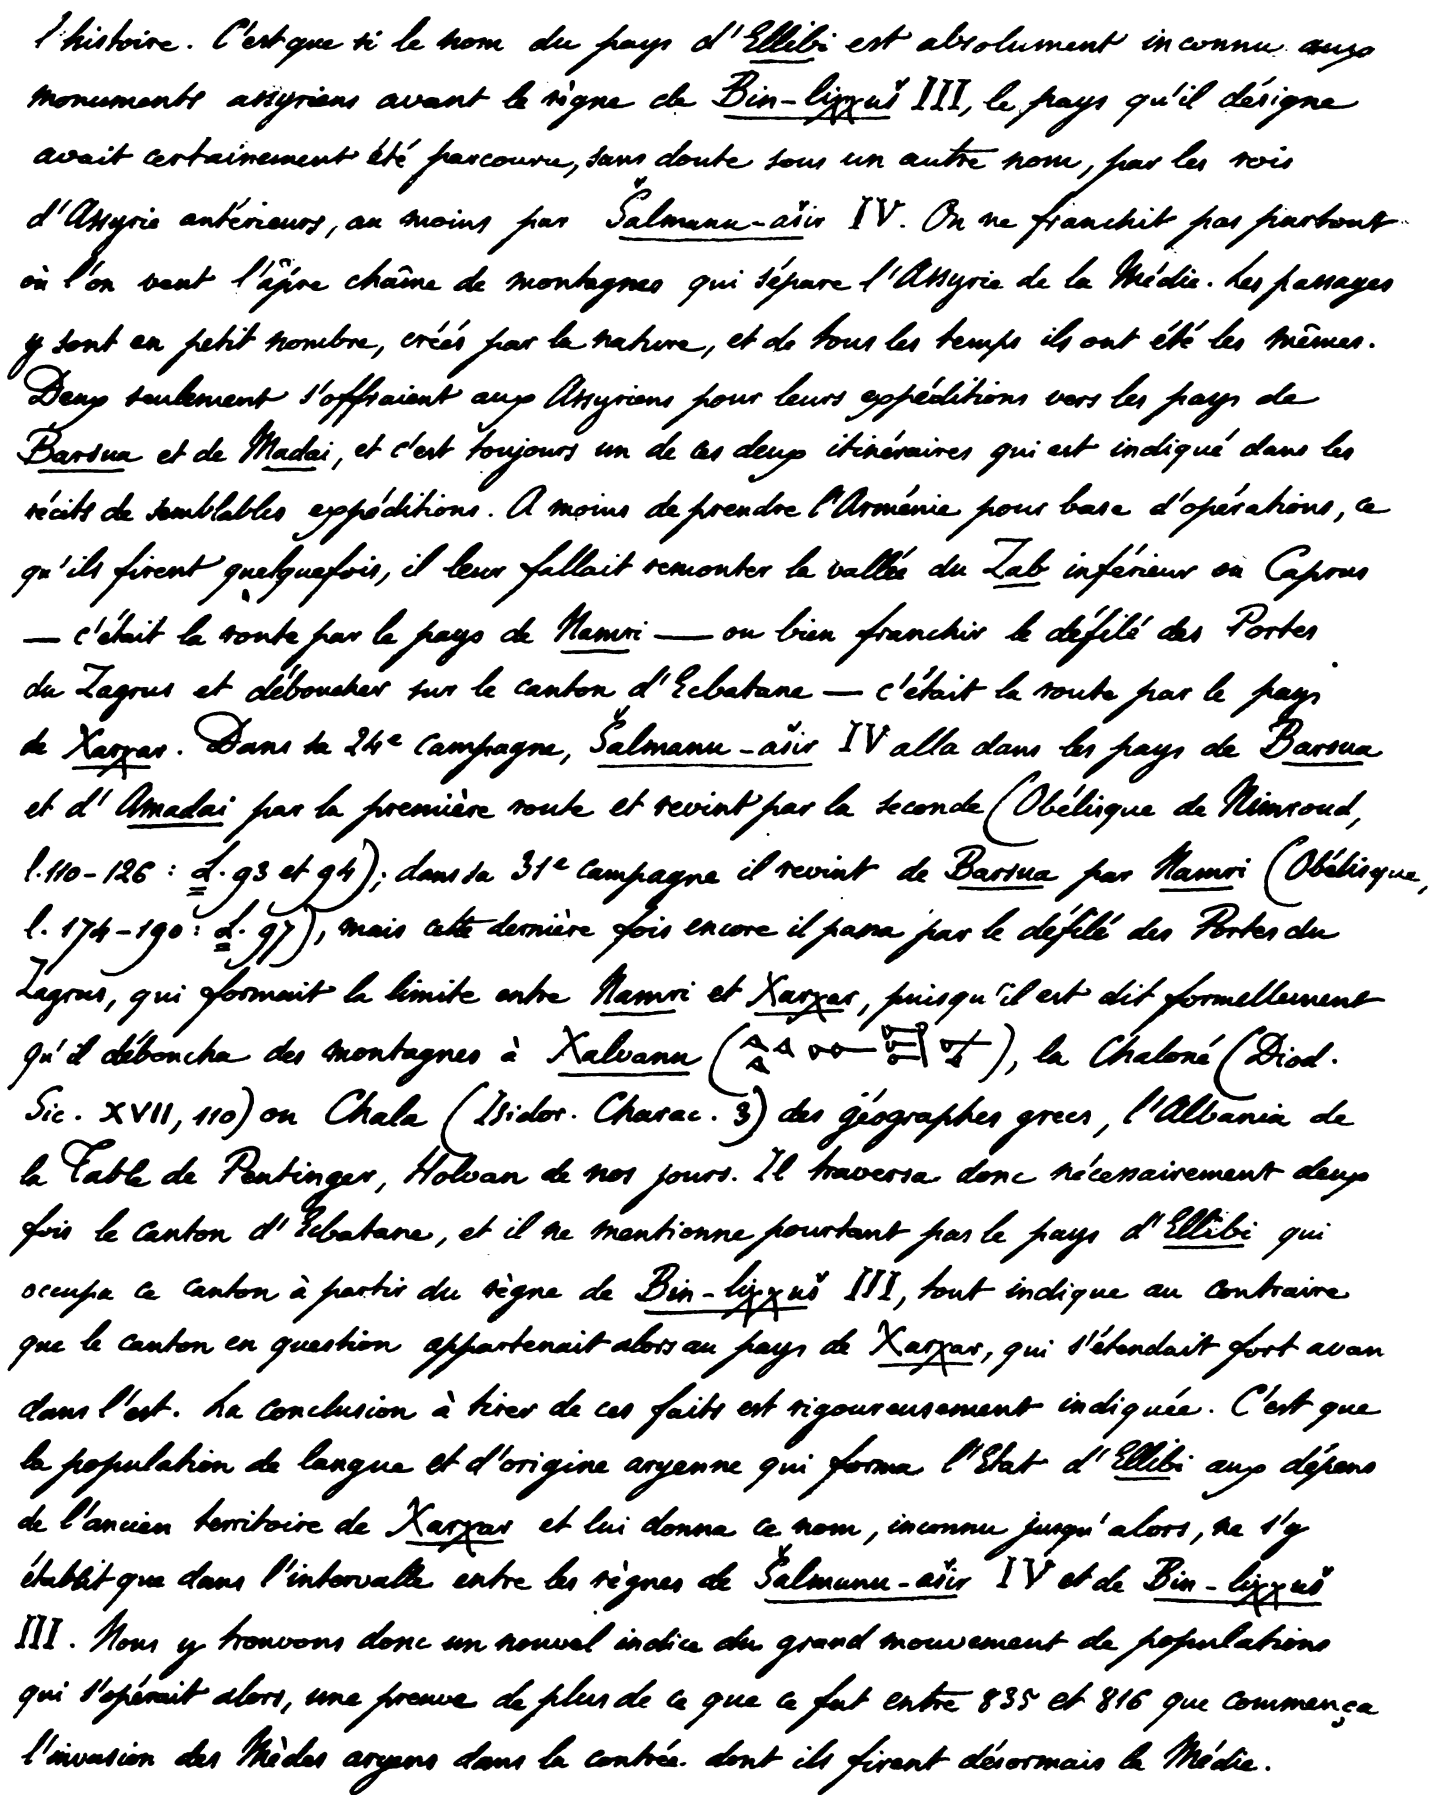 l'histoire. C'est que si le nom du pays d'Ellibi est absolument inconnu aux
monuments assyriens avant le règne de Bin-liχχuš III, le pays qu'il désigne
avait certainement été parcouru, sans doute sous un autre nom, par les rois
d'Assyrie antérieurs, au moins par Šalmanu-ašir IV. On ne franchit pas partout
où l'on veut l'âpre chaîne de montagnes qui sépare l'Assyrie de la Médie. Les passages
y sont en petit nombre, créés par la nature, et de tous les temps ils ont été les mêmes.
Deux seulement s'offraient aux Assyriens pour leurs expéditions vers les pays de
Barsua et de Madai, et c'est toujours un de ces deux itinéraires qui est indiqué dans les
récits de semblables expéditions. A moins de prendre l'Arménie pour base d'opérations, ce
qu'ils firent quelquefois, il leur fallait remonter la vallée du Zab inférieur ou Caprus
— c'était la route par le pays de Namri — ou bien franchir le défilé des Portes
du Zagrus et déboucher sur le canton d'Ecbatane — c'était la route par le pays
de Xarχar. Dans sa 24e campagne, Šalmanu-ašir IV alla dans les pays de Barsua
et d'Amadai par la première route et revint par la seconde (Obélisque de Nimroud,
l. 110-126 : L. 93 et 94); dans sa 31e campagne il revint de Barsua par Namri (Obélisque,
l. 174-190 : L. 97), mais cette dernière fois encore il passa par le défilé des Portes du
Zagrus, qui formait la limite entre Namri et Xarχar, puisqu'il est dit formellement
qu'il déboucha des montagnes à Xalvanu ( ), la Chaloné (Diod.
Sic. XVII, 110) ou Chala (Isidor. Charac. 3) des géographes grecs, l'Albania de
la Table de Peutinger, Holvan de nos jours. Il traversa donc nécessairement deux
fois le canton d'Ecbatane, et il ne mentionne pourtant pas le pays d'Ellibi qui
occupa ce canton à partir du règne de Bin-liχχuš III, tout indique au contraire
que le canton en question appartenait alors au pays de Xarχar, qui s'étendait fort avan
dans l'est. La conclusion à tirer de ces faits est rigoureusement indiquée. C'est que
la population de langue et d'origine aryenne qui forma l'Etat d'Ellibi aux dépens
de l'ancien territoire de Xarχar et lui donna ce nom, inconnu jusqu'alors, ne s'y
établit que dans l'intervalle entre les règnes de Šalmanu-ašir IV et de Bin-liχχuš
III. Nous y trouvons donc un nouvel indice du grand mouvement de populations
qui s'opérait alors, une preuve de plus de ce que ce fut entre 835 et 816 que commença
l'invasion des Mèdes aryens dans la contrée. dont ils firent désormais la Médie.